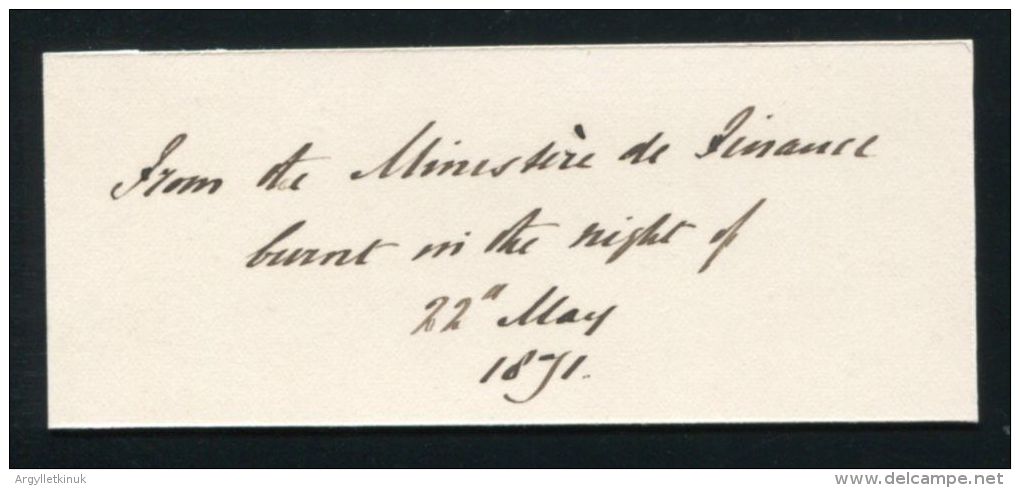 From the Ministère de Finance
burnt in the night of
22d May
1871.
Argylletkinuk
www.delcampe.net